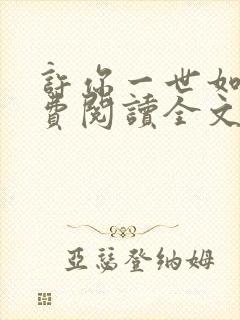 許你一世如
費閱讀全文
亞瑟登納姆